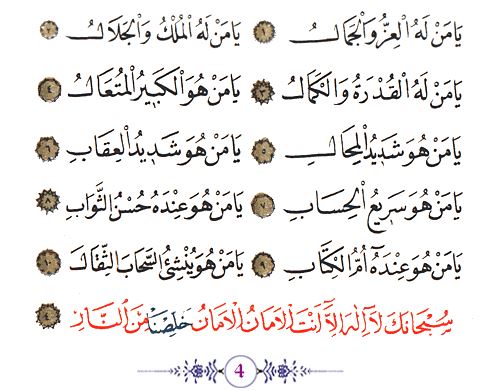 يَا مَنْ لَهُ الْعِزُّ وَالْجَمَالُ ١ يَا مَنْ لَهُ الْمُلْكُ وَالْجَلَالُ ٢
يَا مَنْ لَهُ الْقُدْرَةُ وَالْكَمَالُ ٣ يَا مَنْ هُوَ الْكَبِيرُ الْمُتَعَالُ ٤
يَا مَنْ هُوَ شَدِيدُ الْمِحَالِ ٥ يَا مَنْ هُوَ شَدِيدُ الْعِقَابِ ٦
يَا مَنْ هُوَ سَرِيعُ الْحِسَابِ ٧ يَا مَنْ هُوَ عِنْدَهُ حُسْنُ الثَّوَابِ ٨
يَا مَنْ هُوَ عِنْدَهُٓ اُمُّ الْكِتَابِ ٩ يَا مَنْ هُوَ يُنْشِئُ السَّحَابَ الثِّقَالَ ١٠
سُبْحَانَكَ لَآ اِلٰهَ اِلَّآ اَنْتَ الْاَمَانُ الْاَمَانُ خَلِّصْنَا مِنَ النَّارِ ٤
4